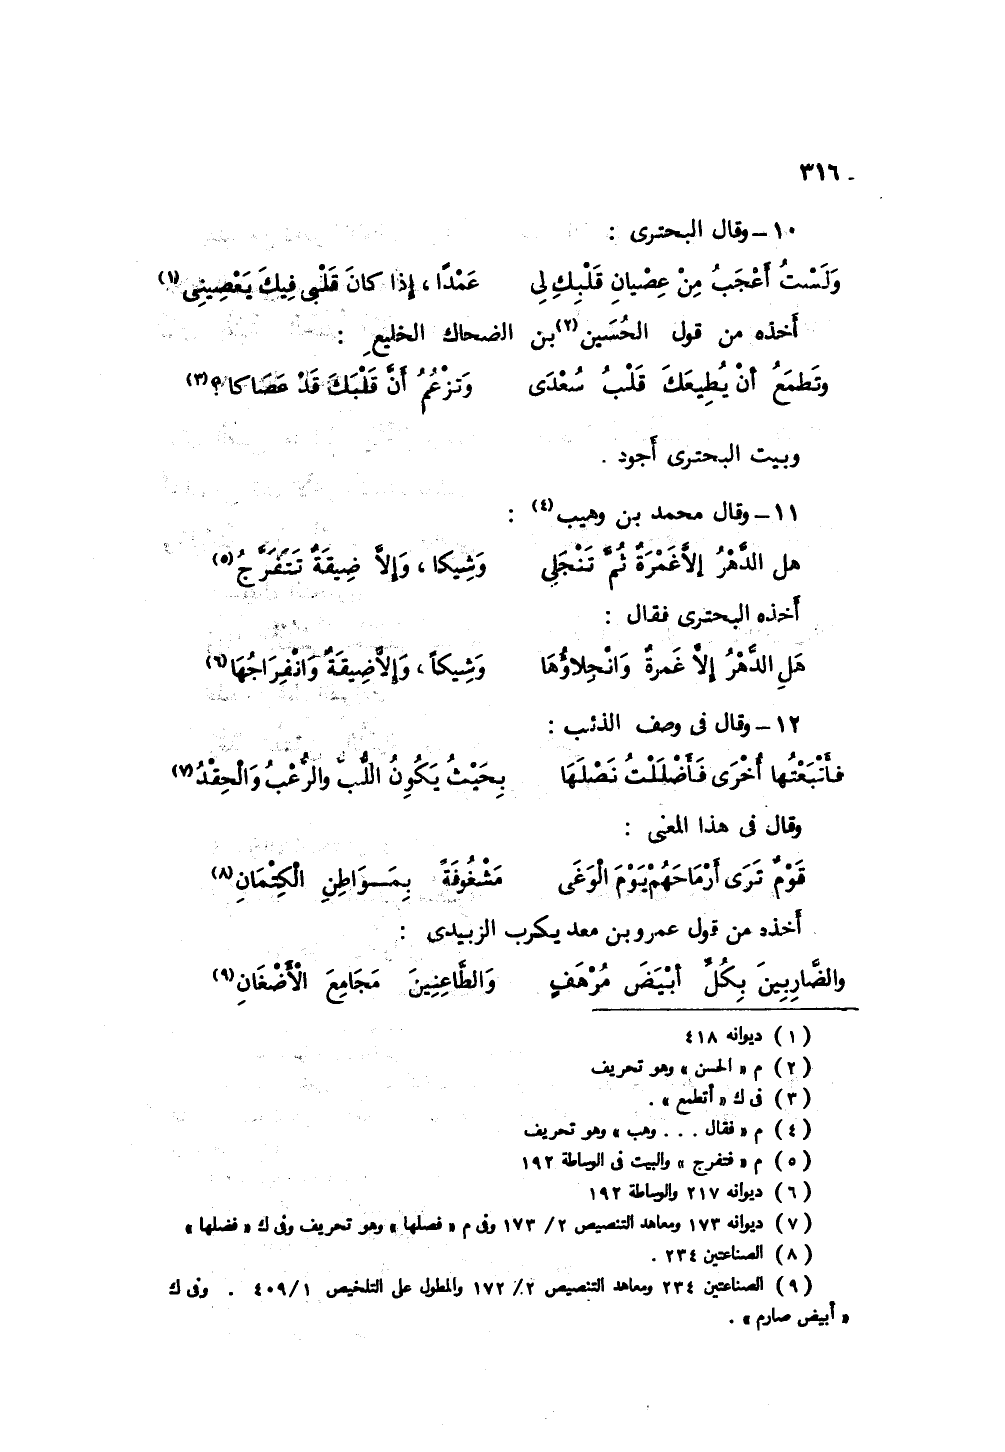 ٣١٦
١٠ – وقال البحترى :
وَلَسْتُ أَعْجَبُ مِنْ عِصْيانِ قَلْبِكِ لِى     عَمْدًا ، إذا كانَ قَلْبى فِيكِ يَعْصِينِى (١)
أخذه من قول الحُسَين (٢) بن الضحاك الخليع :
وتَطمَعُ أنْ يُطِيعَكَ قَلْبُ سُعْدَى     وَتزْعُمُ أَنَّ قَلْبَكَ قَدْ عَصَاكا ؟ (٣)
وبيت البحترى أجود .
١١ – وقال محمد بن وهيب (٤) :
هل الدَّهْرُ إلاَّ غَمْرَةٌ ثُمَّ تَنْجَلِى     وَشِيكا ، وَإلاَّ ضِيقَةٌ تَتَفَرَّجُ (٥)
أخذه البحترى فقال :
هَلِ الدَّهْرُ إلاَّ غَمرةٌ وَانْجِلاؤُهَا     وَشِيكاً ، وَإلاَّ ضِيقَةٌ وَانْفِرَاجُهَا (٦)
١٢ – وقال فى وصف الذئب :
فأتْبَعْتُها أُخْرَى فَأَضْلَلْتُ نَصْلَهَا     بِحَيْثُ يَكُونُ اللُّبُّ والرُّعْبُ وَالْحِقْدُ (٧)
وقال فى هذا المعنى :
قَوْمٌ تَرَى أَرْمَاحَهُمْ يَوْمَ الْوَغَى     مَشْغُوفَةً بِمَوَاطِنِ الْكِتْمَانِ (٨)
أخذه من قول عمرو بن معد يكرب الزبيدى :
والضَّارِبِينَ بِكُلِّ أبْيَضَ مُرْهَفٍ     وَالطَّاعِنِينَ مَجَامِعَ الْأَضْغَانِ (٩)
( ١ ) ديوانه ٤١٨
( ٢ ) م « الحسن » وهو تحريف
( ٣ ) فى ك « أتطمع » .
( ٤ ) م « فقال . . . وهب » وهو تحريف
( ٥ ) م « فتفرج » والبيت فى الوساطة ١٩٢
( ٦ ) ديوانه ٢١٧ والوساطة ١٩٢
( ٧ ) ديوانه ١٧٣ ومعاهد التنصيص ٢ / ١٧٣ وفى م « فصلها » وهو تحريف وفى ك « فضلها »
( ٨ ) الصناعتين ٢٣٤ .
( ٩ ) الصناعتين ٢٣٤ ومعاهد التنصيص ٢ / ١٧٢ والمطول على التلخيص ١ / ٤٠٩ . وفى ك
« أبيض صارم » .